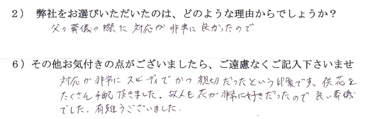 2） 弊社をお選びいただいたのは、どのような理由からでしょうか？
父の葬儀の際に対応が非常に良かったので
6）その他お気付きの点がございましたら、ご遠慮なくご記入下さいませ
対応が非常にスピーディでかつ親切だったという印象です。供花を
たくさん手配頂きました。故人も花が非常に好きだったので良い葬儀
でした。有難うございました。